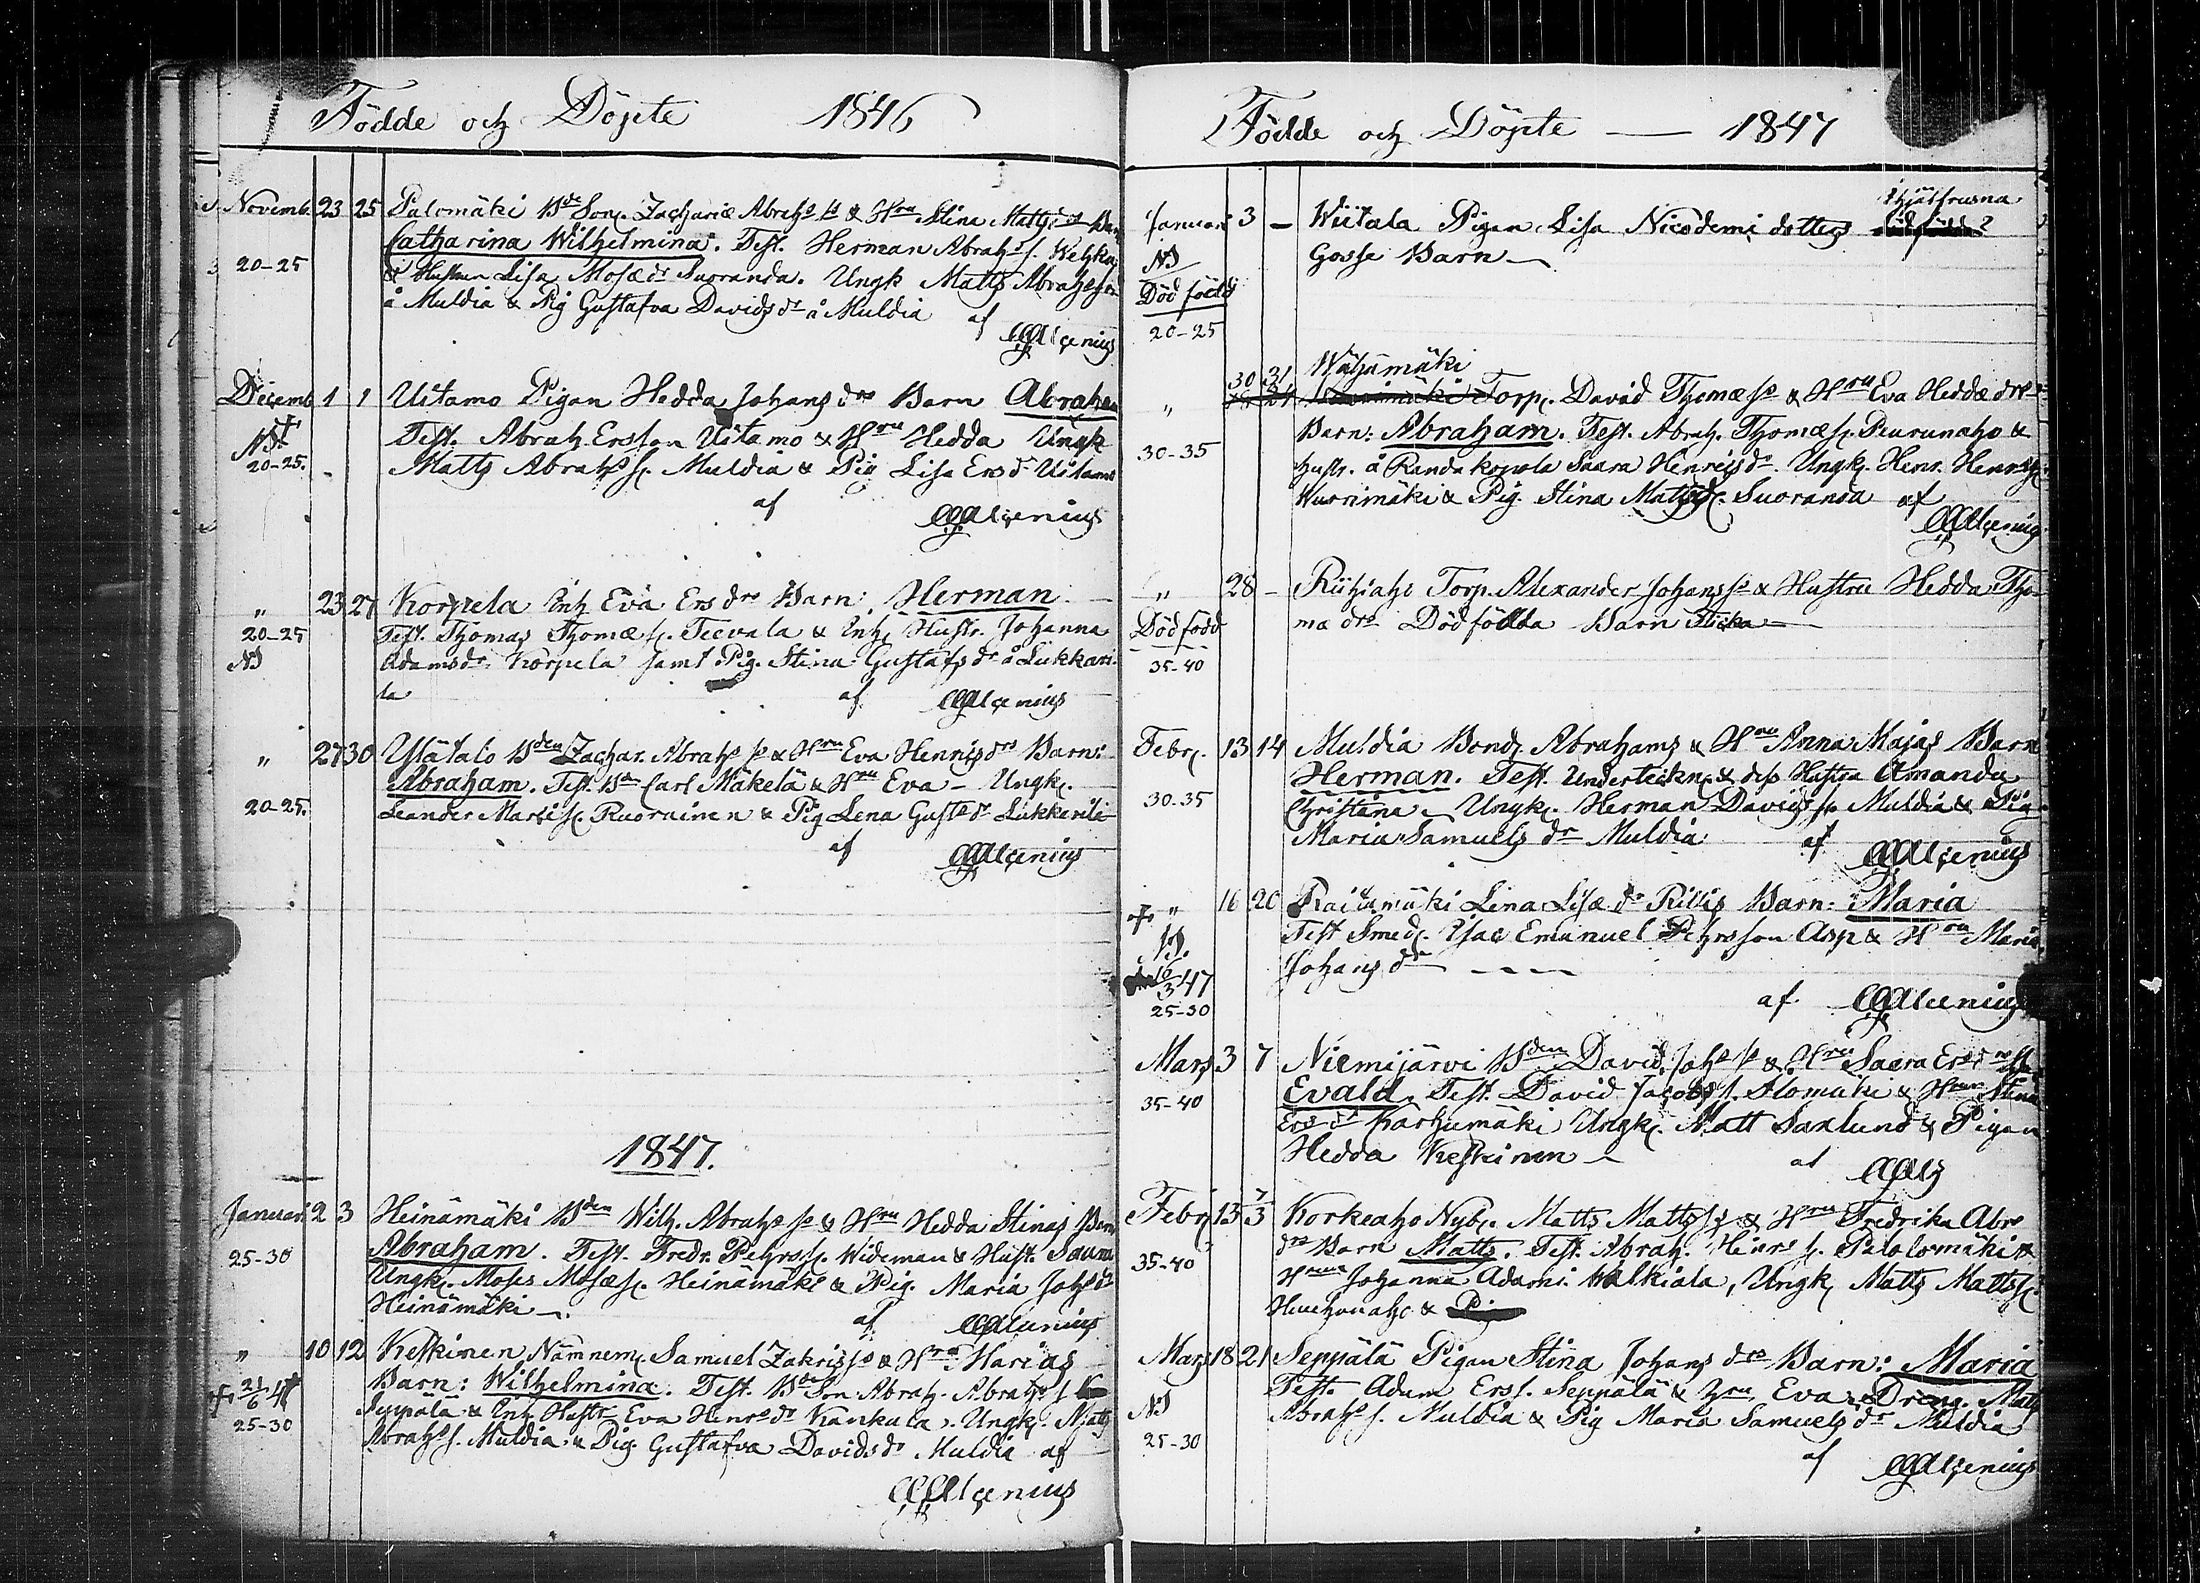 Födde och Döpte 1846
Novemb. 23 25 Palomäki Bde Son. Zachariæ Abrahs so & Hru Stina Matts drs Barn
Catharina Wilhelmina. Test. Herman Abrahs s.
20-25 & Hustrun Lisa Mosædr Suoranda. Ungk Matts Abrahsson
å Muldia & Pig Gustafva Davids dr å Muldia af
Alcenius
Decemb 1 1 Uitamo Pigan Hedda Johans drs Barn Abraham
Test. Abrah. Ersson Uitamo & Hru Hedda Ungk
20-25. Matts Abrahs s. Muldia & Pig Lisa Ers dr Uitamo
af Alcenius
„ 23 27 Korpela Inh Eva Ers drs Barn: Herman
20-25 Test. Thomas Thomæ s. Teevala & Inh. Hustr. Johanna
Adamsdr. Korpela samt Pig. Stina Gustafs dr å Lukkari-
la af Alcenius
„ 27 30 Ylätalo Bden Zachar. Abrahs so & Hru Eva Henrics drs Barn:
Abraham. Test. Bn Carl Mäkelä & Hru Eva - Ungk.
20-25. Leander Ruorainen & Pig Lena Gusts dr Lukkarila
af Alcenius
1847.
Januari 2 3 Heinämäki Bden Wilh. Abrahs so & Hru Hedda Stinas Barn
25-30 Abraham. Test. Fredr. Pehrss. Wideman & Hust.
Ungk. Moses Mosæs. Heinämäki & Pig. Maria Johs dr
Heinämäki af Alcenius
„ 10 12 Keskinen Nämnem. Samuel Zakriss so & Hru Marias
Barn: Wilhelmina. Test. Bde Son Abrah. Abrahs s
25-30 Seppälä & Inh Hustr Eva Henrs dr Kankula. Ungk. Matts
Abrahs s. Muldia & Pig. Gustafva Davidsdr Muldia af
Alcenius
Födde och Döpte — 1847
Januari 3 - Wiitala Pigan Lisa Nicodemi dotters ihjälfrusna
Gosse Barn
Död född
20-25
Wäljämäki
30 31 Torp. David Thomæ so & Hru Eva Heddæ drs
„ Barn: Abraham. Test. Abrah. Thomæs. Peurunaho &
30-35 hustr. å Randakopola Saara Henrics dr. Ungk. Henr. Henrics s.
Wuorimäki & Pig. Stina Matts d. Suoranda af
Alcenius
„ 28 - Riihiaho Torp. Alexander Johans so & Hustru Hedda Tho-
Död född mæ drs Död födda Barn flicka
35-40
Febr. 13 14 Muldia Bond. Abrahams & Hru Anna Majas Barn
Herman. Test. Undertecknd & dess Hustru Amanda
30-35 Christina, Ungk. Herman Davids s. Muldia & Pig
Maria Samuels dr Muldia af Alcenius
„ 16 20 Raitamäki Lina Lisæ dr Rillis Barn: Maria
Test Smed. Isac Emanuel Pehrsson Asp & Hru Maria
Johans dr
16/3 47
25-30 af Alcenius
Mars 3 7 Niemijärvi Bden David Johs so & Hru Saara Ers drs
35-40 Evald. Test. David Jacobs s. Alomäki & Hrun Stina
Ers dr Karhumäki Ungk. Matt Saxlund & Pigan
Hedda Keskinen af
Febr. 13 7/3 Korkeaho Nyb. Matts Matts so & Hru Fredrika Abrs
35-40 drs Barn Matts. Test. Abrah. Heinr s. Palolomäki &
Hrun Johanna Adami Walkiala, Ungk Matts Matts s.
& Pig
Mars 18 21 Seppälä Pigan Stina Johans drs Barn: Maria
Test. Adam Ers s. Seppälä & Hru Eva, Dreng. Matts
25-30 Abrahs s. Muldia & Pig Maria Samuels dr Muldia
af Alcenius